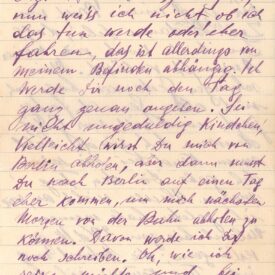 nun weiß ich nicht, ob ich
das tun werde oder eher
fahren, das ist allerdings von
meinem Befinden abhängig. Ich
werde Dir noch den Tag
ganz genau angeben. Sei
nicht ungeduldig Kindchen,
Vielleicht wirst Du mich von
Berlin abholen, aber dann musst
Du nach Berlin auf einen Tag
eher kommen, um mich nächsten
Morgen von der Bahn abholen zu
können. Davon werde ich Dir
noch schreiben. Oh, wie ich